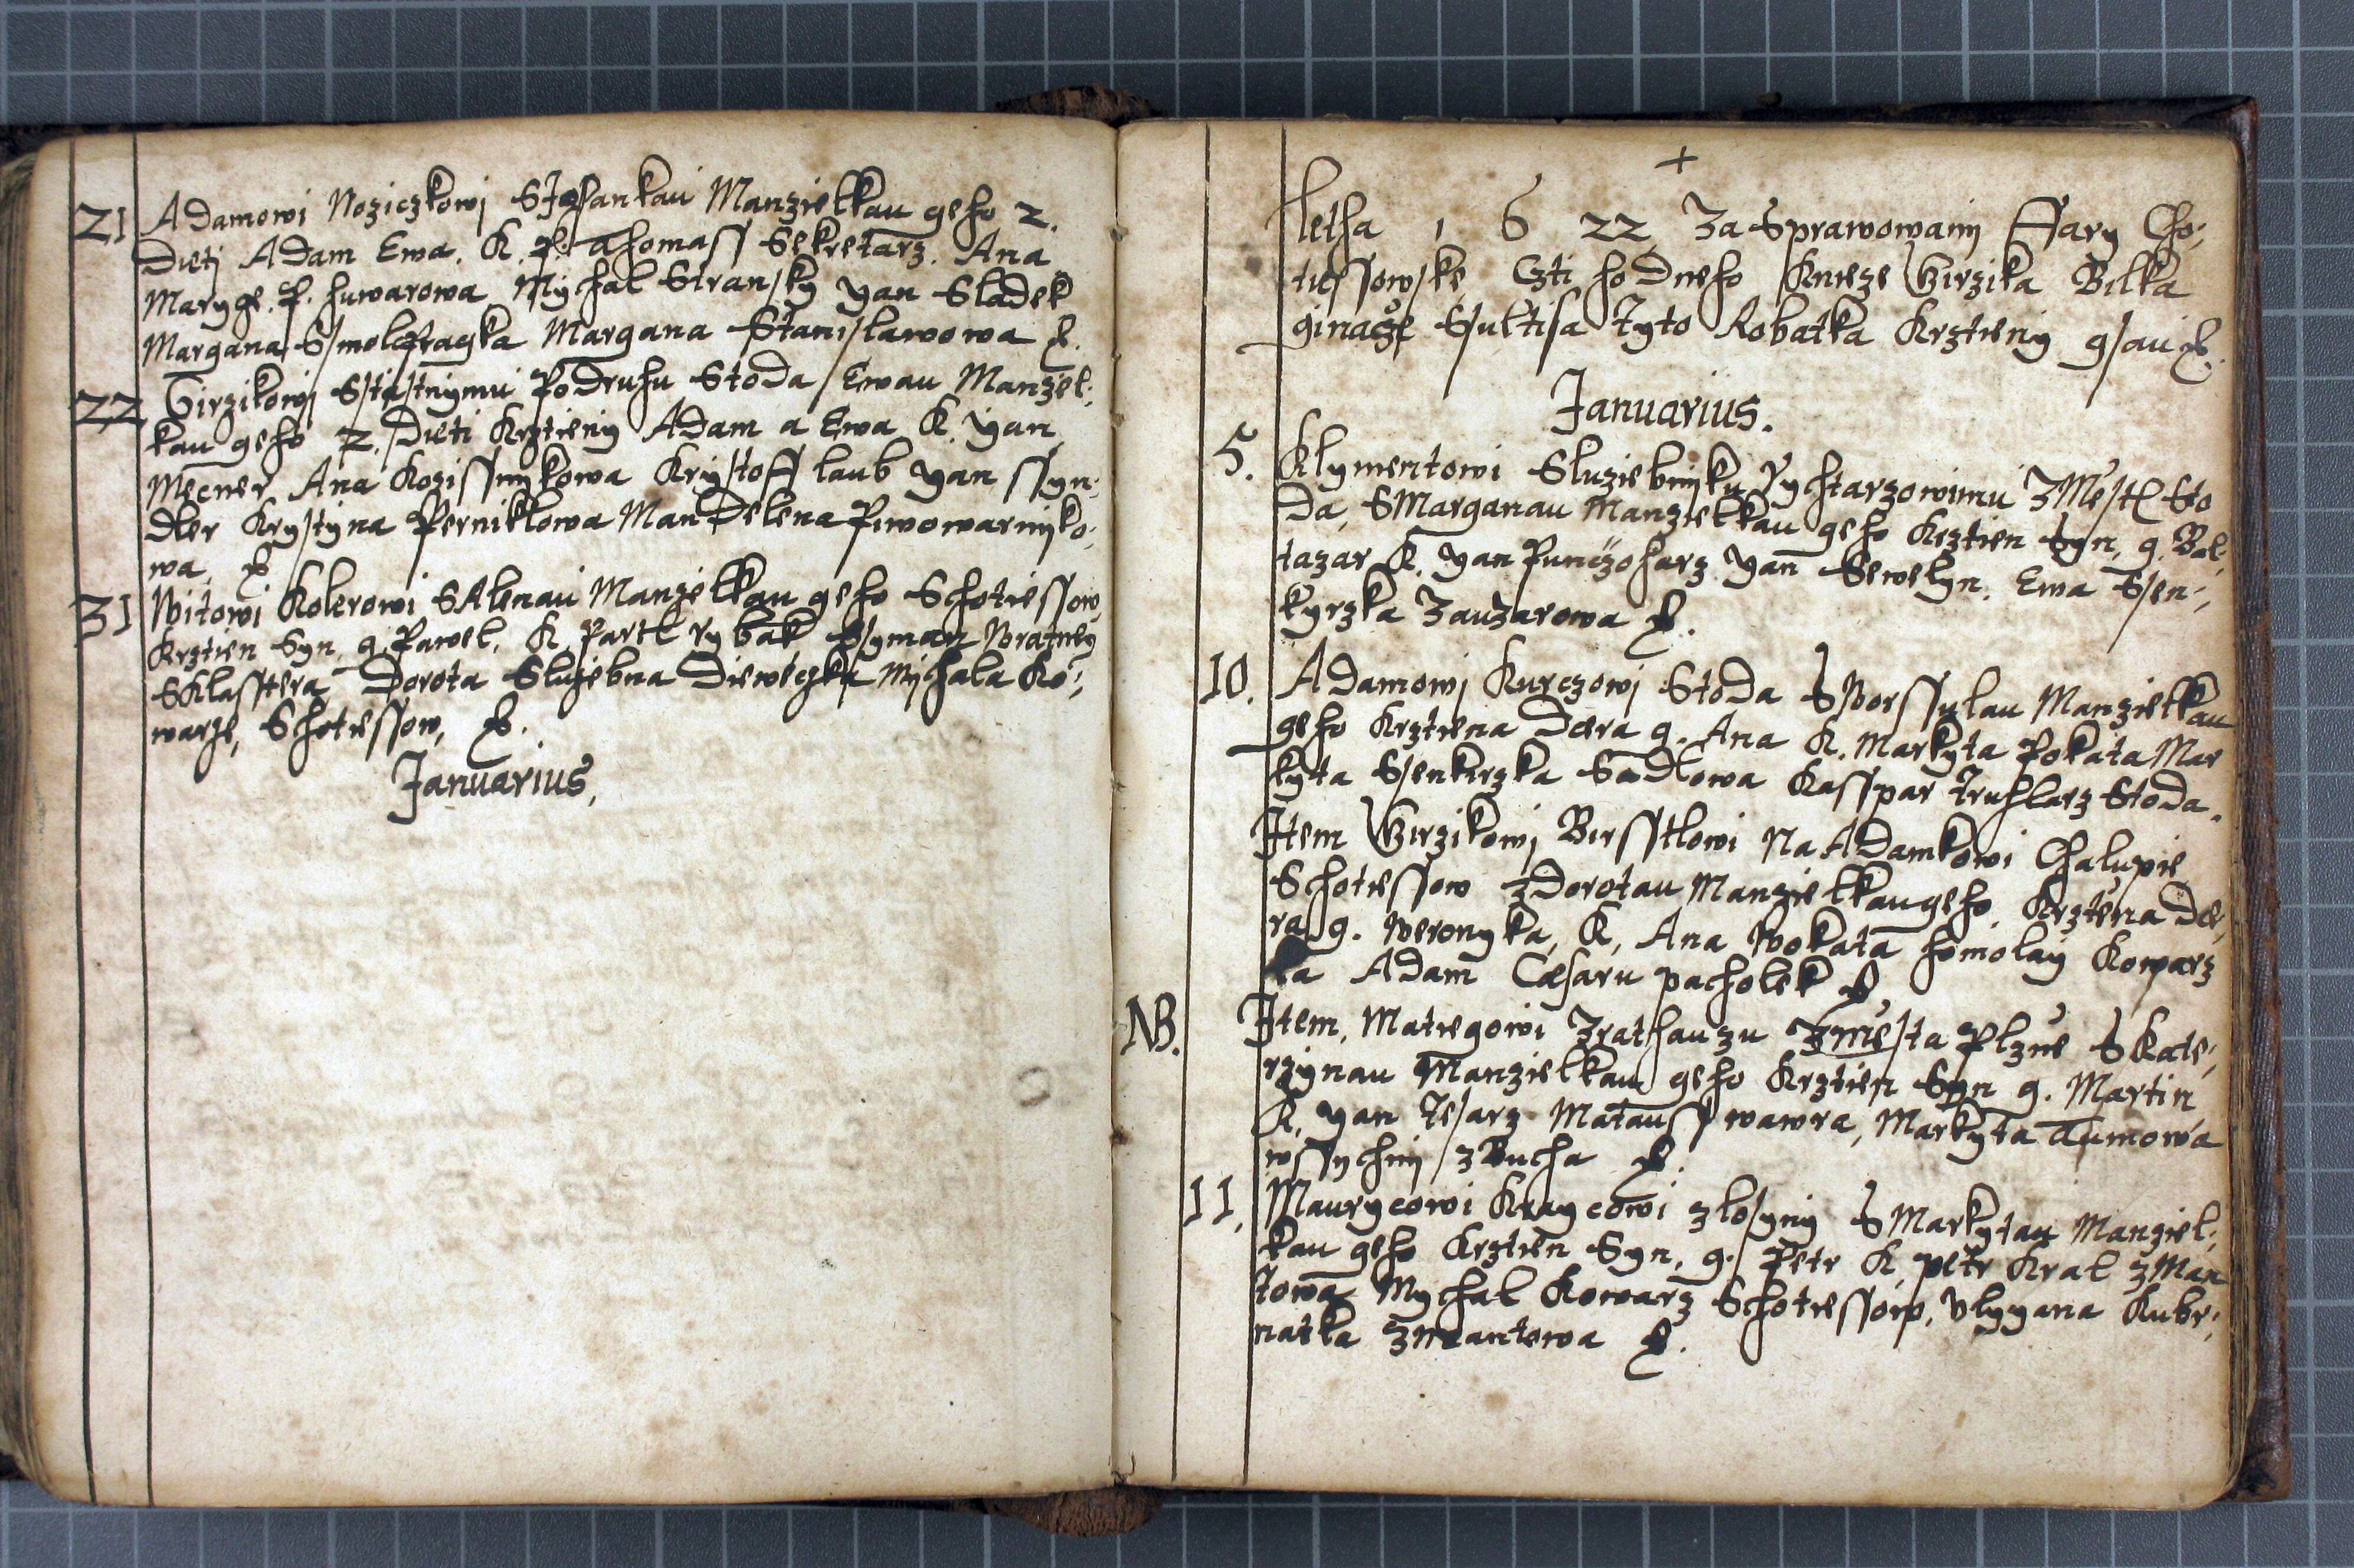 21 Adamowi Noziczkowj S Johankau Manzielkau geho 2.
Dieti Adam Ewa. K. P. Thomass Sekretarz. Ana
Maryge. P. huwarowa Mychal Stransky yan Sladek
Margana Margana Stanislawowa
22 Girzikowj Sstiastnymu Podruhu Stoda Ewau Manzel:
kau geho 2. Dieti Krztieny Adam a Ewa K. yan
Mecner Ana Kozissnykowa Krystoff laub yan ssyn:
dler Krystyna Perniklowa Mandelena Piwowarnyko:
wa
31 Witowi Kolerowi S Alenau Manzelkau geho S Chotiessow
Krztien Syn, g. Pawel. K. Partl rybak Ssyman Wratney
S Klasstera Dorota Sluzebna Dieweczka Mychala Ko:
warze, S Chotiessow,
Januarius,
+
Letha 1 6 22 Za Sprawowanij Ffary Cho:
tiessowske Czti hodneho Knieze Girzika Bilka
ginacze Ssultisa Tyto Robatka Krztieny gsau
Januarius.
5. Klymentowi Sluziebnyku Rychtarzowimu Z Mestl Sto
da, S Marganau Manzielkau geho Krztien Syn, g. Bal
tazar K. yan Punczoharz yan Sewelyn. Ewa Ssen:
kyrzka Zauzarowa
10. Adamowj Kurczowj Stoda S Worssylau Manzielkau
geho Krztiena Dcera g. Ana K. Markyta Pokata Mar
kyta Ssenkirzka Sadlowa Kasspar Truhlarz Stoda.
Item Girzikowj Birsstlowi Na Adamkowi Chalupie
S Chotiessow z Dorotau Manzielkau geho. Krztena Dce
ra g. Weronyka, K, Ana Wokata homolay Kowarz
ka Adam Caesaru pacholek
NB. Item, Matiegowi Z rathauzu Z mesta Plzne S Kate:
rzynau Manzielkau geho Krztien Syn g. Martin
K, yan Tesarz Matauss wawra, Markyta Tumowa
wssychnj z Bucha
11, Maurycowi Kraycowi z losyny S Markytau Manziel:
kau geho Krztien Syn, g. Petr K, petr Kral z Man
towa Mychal Kowarz S Chotiessow, Ulyyana Kubr:
natka z mantowa